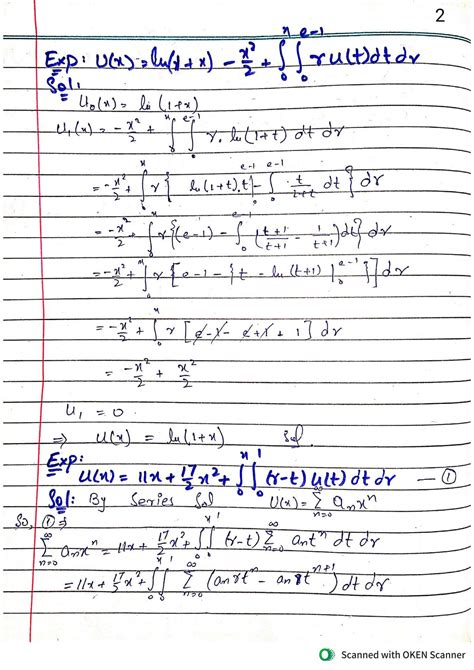 2
Exp: U(x) = ln(1+x) - x²/2 + ∫₀ˣ ∫₀ᵉ⁻¹ r u(t) dt dr
Sol:
U₀(x) = ln (1+x)
U₁(x) = -x²/2 + ∫₀ˣ ∫₀ᵉ⁻¹ r. ln(1+t) dt dr
= -x²/2 + ∫₀ˣ r { ln(1+t).t|ᵉ⁻¹ - ∫₀ᵉ⁻¹ t/(1+t) dt } dr
= -x²/2 + ∫₀ˣ r {(e-1) - ∫₀ᵉ⁻¹ ( (t+1)/(t+1) - 1/(t+1) ) dt } dr
= -x²/2 + ∫₀ˣ r [ e-1 - { t - ln(t+1) |₀ᵉ⁻¹ } ] dr
= -x²/2 + ∫₀ˣ r [ e-1 - e+1 + 1 ] dr
= -x²/2 + x²/2
U₁ = 0
⇒ U(x) = ln(1+x) Sol.
Exp:
U(x) = 11x + 17/2 x² + ∫₀ˣ ∫₀¹ (r-t) U(t) dt dr — ①
Sol: By Series Sol U(x) = Σₙ₌₀^∞ aₙxⁿ
So, ① ⇒
Σₙ₌₀^∞ aₙxⁿ = 11x + 17/2 x² + ∫₀ˣ ∫₀¹ (r-t) Σₙ₌₀^∞ aₙtⁿ dt dr
= 11x + 17/2 x² + ∫₀ˣ ∫₀¹ Σₙ₌₀^∞ (aₙ r tⁿ - aₙ r tⁿ⁺¹) dt dr
Scanned with OKEN Scanner